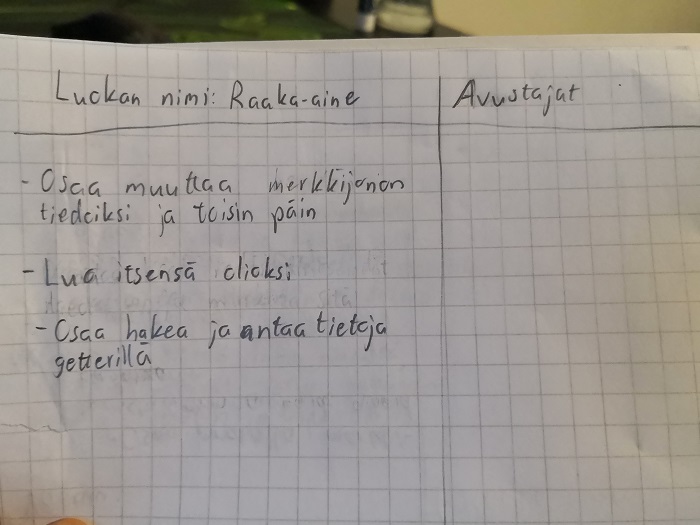 Luokan nimi: Raaka-aine
Avustajat
- Osaa muuttaa merkkijonon
tiedoiksi ja toisin päin
- Lua itsensä olioksi
- Osaa hakea ja antaa tietoja
getterillä